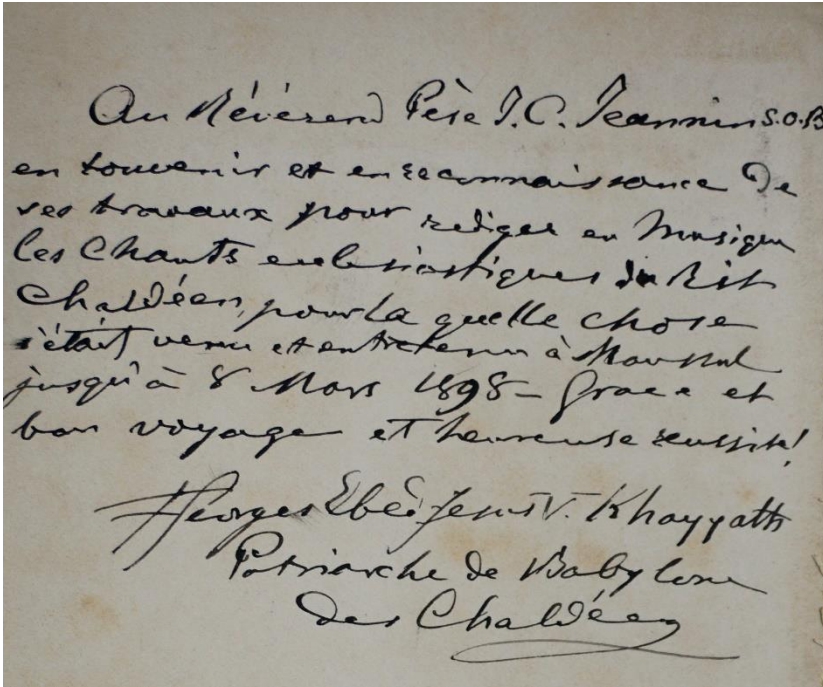 Au Révérend Père J. C. Jeannin S.O.B
en souvenir et en reconnaissance de
ses travaux pour rediger en Musique
les Chants ecclesiastiques du Rit
Chaldéen, pour la quelle chose
s'était venu et entretenu à Moussul
jusqu'à 8 Mars 1898 - Grace et
bon voyage et heureuse reussite!
Georges Ebed Jesus V. Khayyatth
Patriarche de Babylone
des Chaldéens